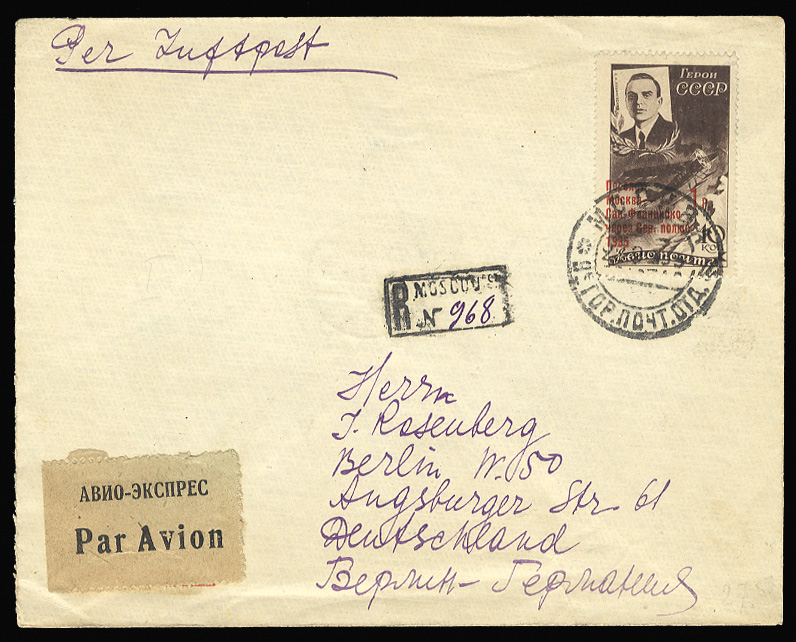 Per Luftpost
ГЕРОИ
СССР
Перелет
Москва-
Сан-Франциско
через Сев. полюс
1935
1 р.
10
КОП
АВИО ПОЧТА
МОСКВА
ГОР. ПОЧТ. ОТД.
R
MOSCOU
№ 968
Herrn
I. Rosenberg
Berlin W. 50
Augsburger Str. 61
Deutschland
Берлин - Германия
АВИО-ЭКСПРЕС
Par Avion